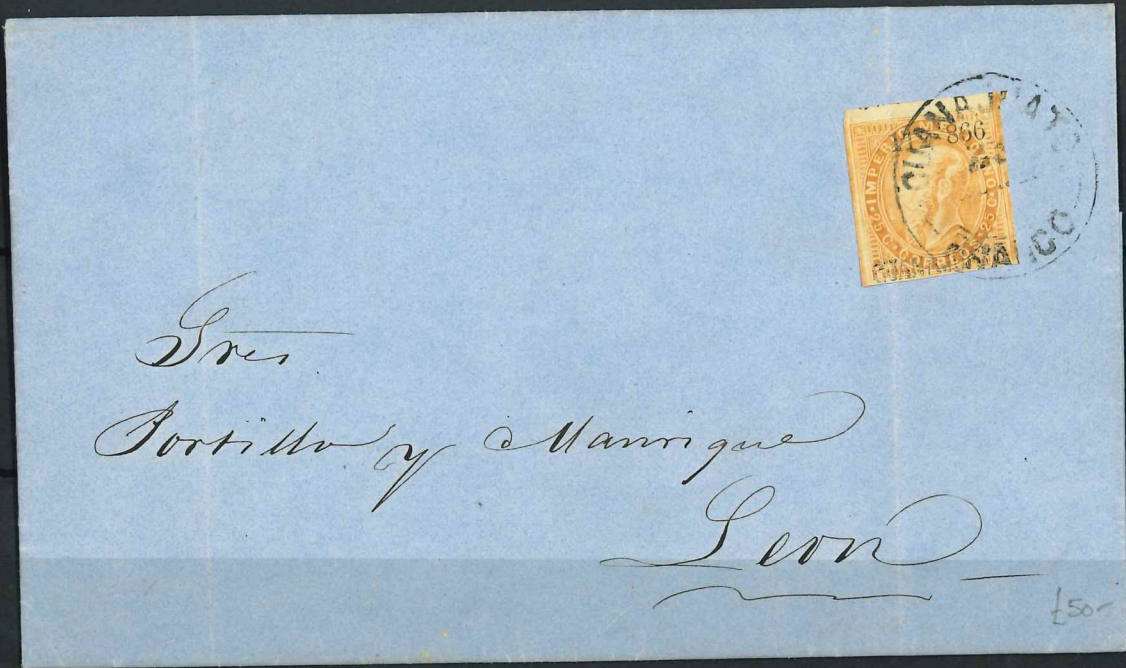 GUANAJUATO
FRANCO
866
IMPERIO MEXICANO
25 C. CORREOS 25 C.
Sres
Portillo y Manrique
Leon
£50-